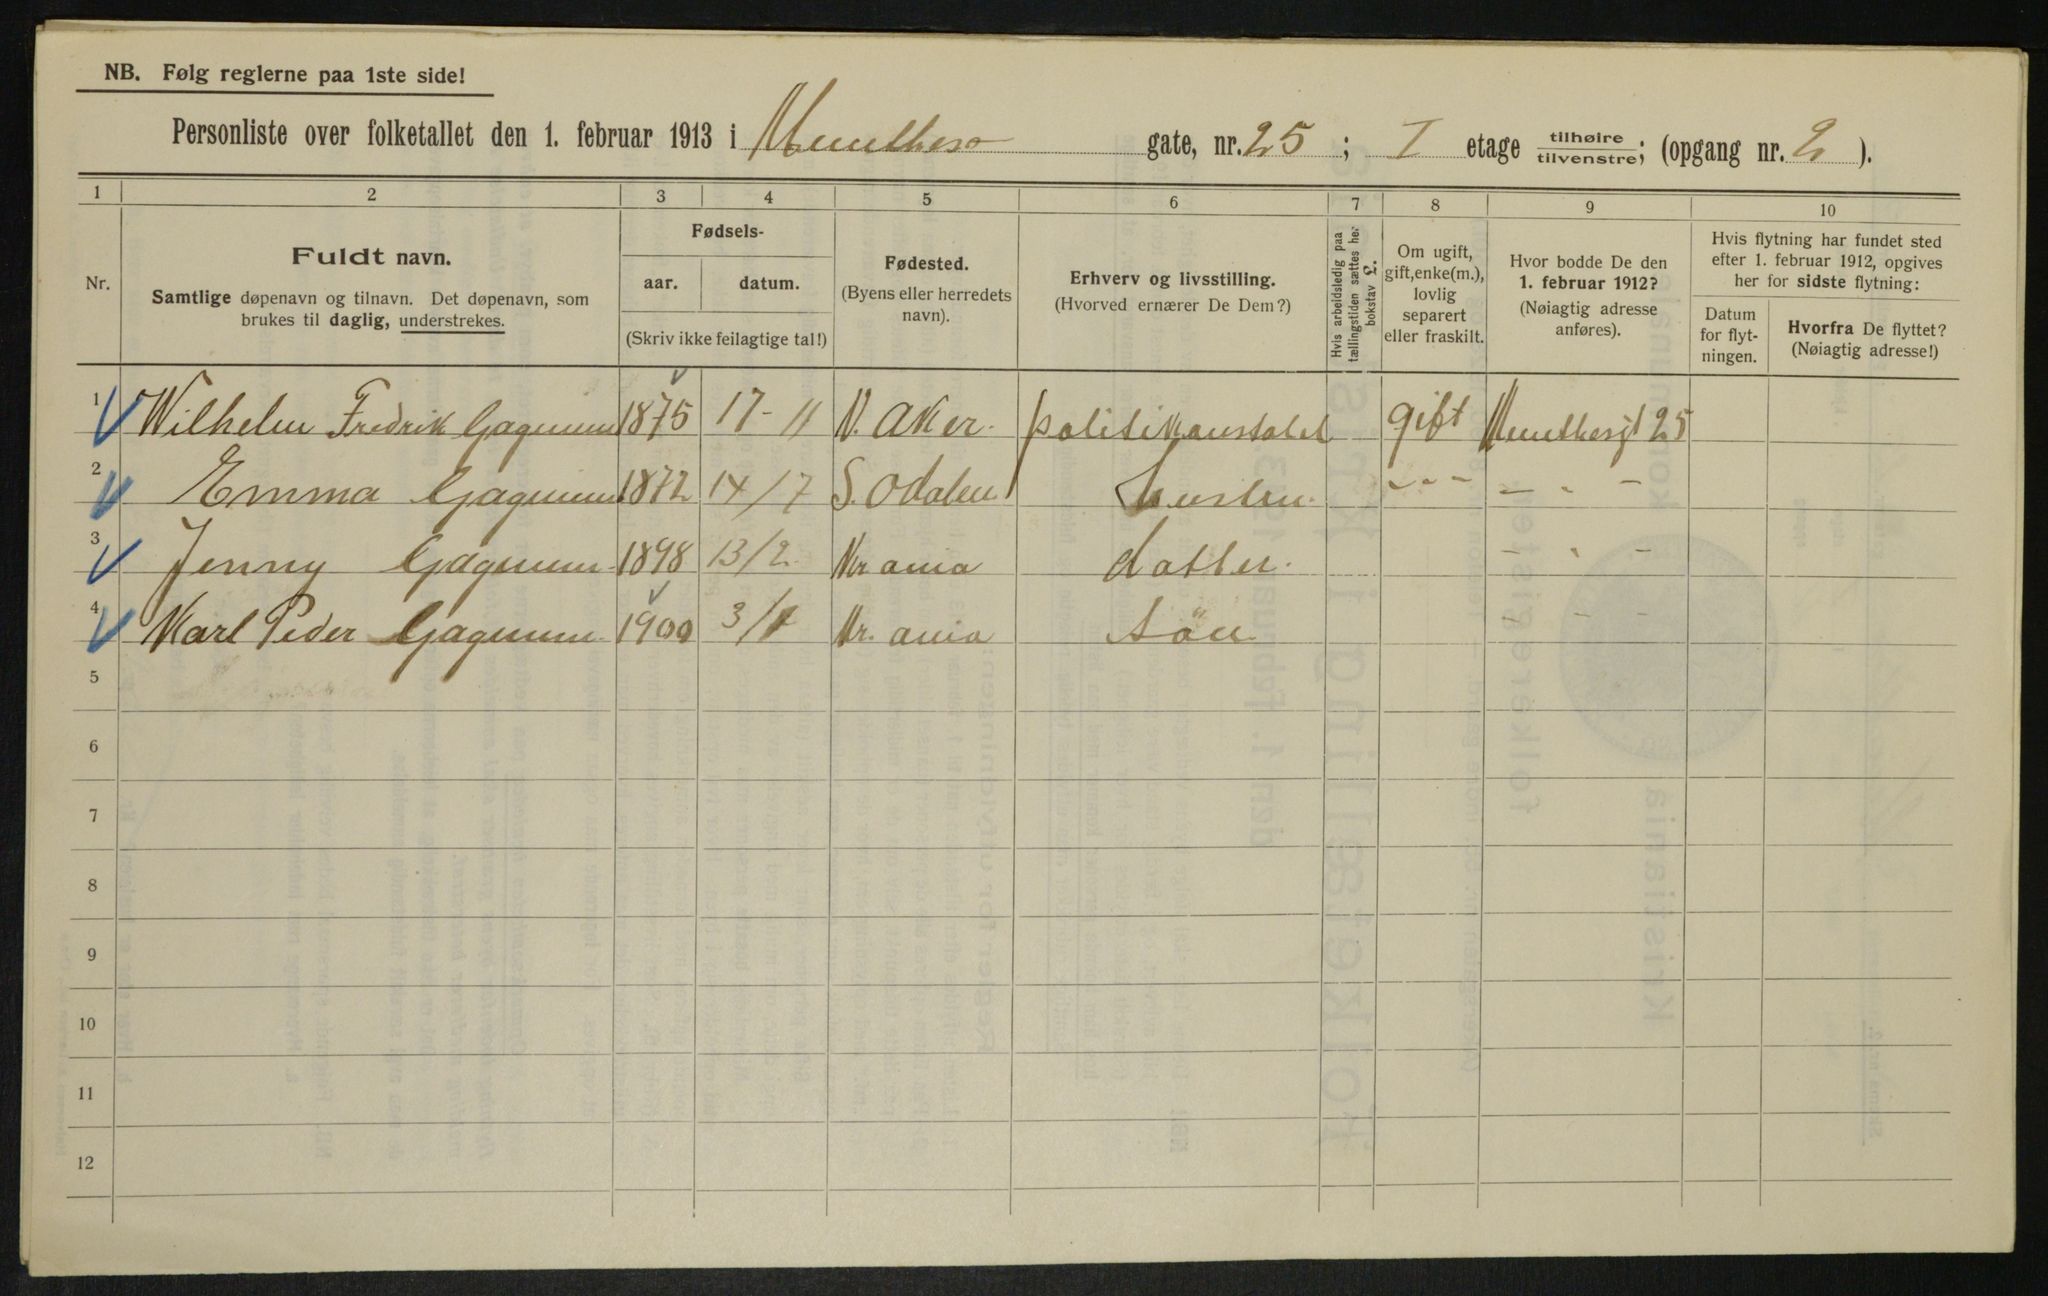 NB. Følg reglerne paa 1ste side!
Personliste over folketallet den 1. februar 1913 i Munthess gate, nr. 25 ; I etage tilhøire tilvenstre; (opgang nr. 2 ).
1 2 3 4 5 6 7 8 9 10
Nr.
Fuldt navn.
Samtlige døpenavn og tilnavn. Det døpenavn, som
brukes til daglig, understrekes.
Fødsels-
aar. datum.
(Skriv ikke feilagtige tal!)
Fødested.
(Byens eller herredets
navn).
Erhverv og livsstilling.
(Hvorved ernærer De Dem?)
Hvis arbeidsledig paa
tællingstiden sættes her
bokstav L.
Om ugift,
gift, enke(m.),
lovlig
separert
eller fraskilt.
Hvor bodde De den
1. februar 1912?
(Nøiagtig adresse
anføres).
Hvis flytning har fundet sted
efter 1. februar 1912, opgives
her for sidste flytning:
Datum
for flyt-
ningen.
Hvorfra De flyttet?
(Nøiagtig adresse!)
1 Wilhelm Fredrik Gagnum 1875 17-11 V. Aker. politikonstabel gift Munthesgt 25
2 Emma Gagnum 1872 14/7 S. Odalen hustru. - - - - - -
3 Jenny Gagnum 1898 13/2 Kr ania datter. - - -
4 Karl Peder Gagnum 1900 3/ Kr. ania søn - - -
5
6
7
8
9
10
11
12